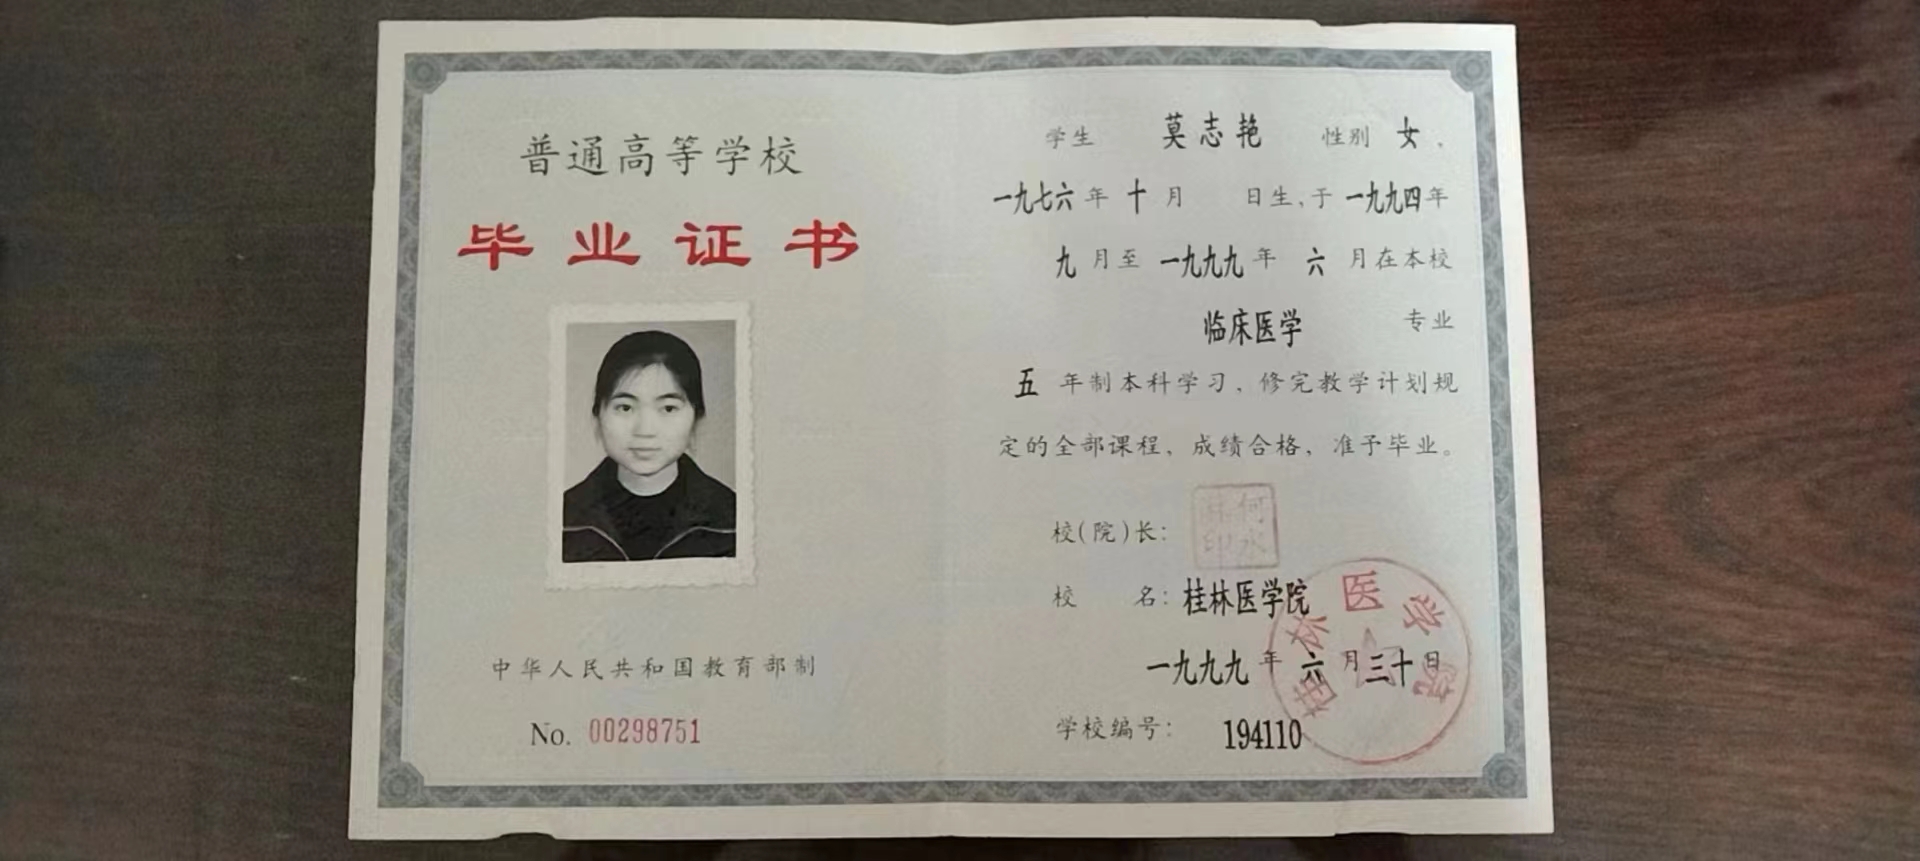 普通高等学校
毕业证书
中华人民共和国教育部制
No. 00298751
学生 莫志艳 性别 女，
一九七六年十月 日生，于一九九四年
九月至一九九九年六月在本校
临床医学 专业
五年制本科学习，修完教学计划规
定的全部课程，成绩合格，准予毕业。
校(院)长：
校 名：桂林医学院
一九九九年六月三十日
学校编号： 194110
桂林医学院